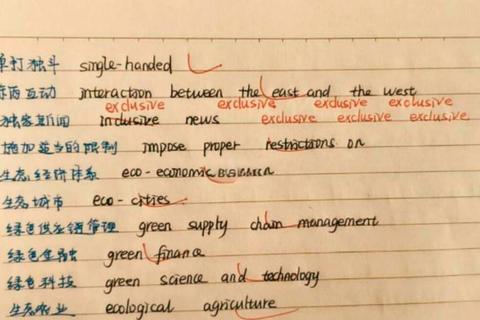 单打独斗 single-handed
东西互动 interaction between the east and the west
exclusive exclusive exclusive exclusive
独家新闻 inclusive news exclusive exclusive exclusive
施加适当的限制 impose proper restrictions on
生态经济体系 eco-economic
生态城市 eco-cities
绿色供应链管理 green supply chain management
绿色金融 green finance
绿色科技 green science and technology
生态农业 ecological agriculture